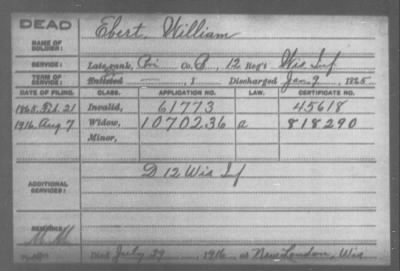 DEAD
NAME OF SOLDIER: Ebert, William
SERVICE: Late rank, Pri Co. B, 12 Reg't Wis Inf
TERM OF SERVICE: Enlisted 1 Discharged Jan. 9, 1865
DATE OF FILING. CLASS. APPLICATION NO. LAW. CERTIFICATE NO.
1865. Feb. 21 Invalid, 61773 45618
1916. Aug 7 Widow, 1070236 a 818290
Minor,
ADDITIONAL SERVICES: D 12 Wis Inf
REMARKS:
Died July 29, 1916 at New London, Wis